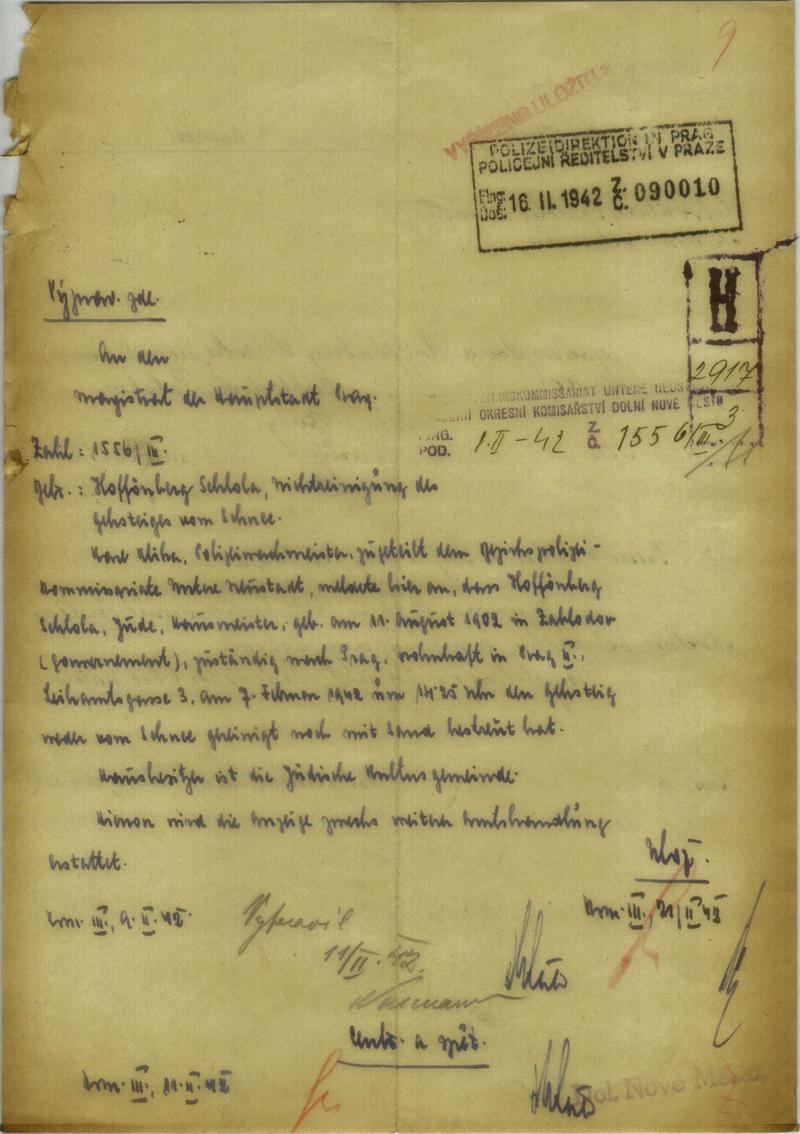 9
VYŘÍZENO ULOŽITI
POLIZEIDIREKTION IN PRAG
POLICEJNÍ ŘEDITELSTVÍ V PRAZE
Eing. Doš. 16. II. 1942 Z. Č. 090010
H
2917
3
Výprav. zde.
An den
Magistrat der Hauptstadt Prag.
BEZIRKSKOMMISSARIAT UNTERE NEUS
OKRESNÍ KOMISAŘSTVÍ DOLNÍ NOVÉ MĚSTO
EING. POD. 1.II-42 Z. Č. 1556/III.
Zahl : 1556/III.
Betr. : Hoffönberg Schlola, Nichtreinigung des
Gehsteiges vom Schnee.
Karl Kliha, Polizeiwachmeister, zugeteilt dem Bezirkspolizei-
kommissariate Untere Neustadt, meldete hier an, dass Hoffönberg
Schlola, Jude, Hausmeister, geb. am 11. August 1902 in Zablodov
(Gouvernement), zuständig nach Prag, wohnhaft in Prag II.,
Leihamtsgasse 3, am 7. Februar 1942 um 14·25 Uhr den Gehsteig
weder vom Schnee gereinigt noch mit Sand bestreut hat.
Hausbesitzer ist die Jüdische Kultusgemeinde.
Hievon wird die Anzeige zwecks weiterer Amtshandlung
erstattet.
Kom. III., 9. II. 42.
Vypravil
11/II. 42.
Kom. III., 21/II 42
a zpět.
Kom. III., 11. II. 42
Pol. Nové Město